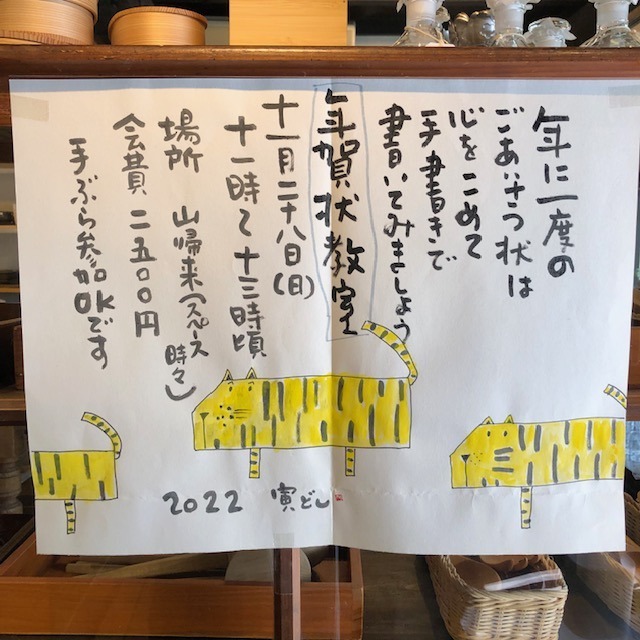 年に一度の
ごあいさつ状は
心をこめて
手書きで
書いてみましょう
年賀状教室
十一月二十八日(日)
十一時〜十三時頃
場所 山帰来(スペース時々)
会費 二五〇〇円
手ぶら参加OKです
2022 寅どし